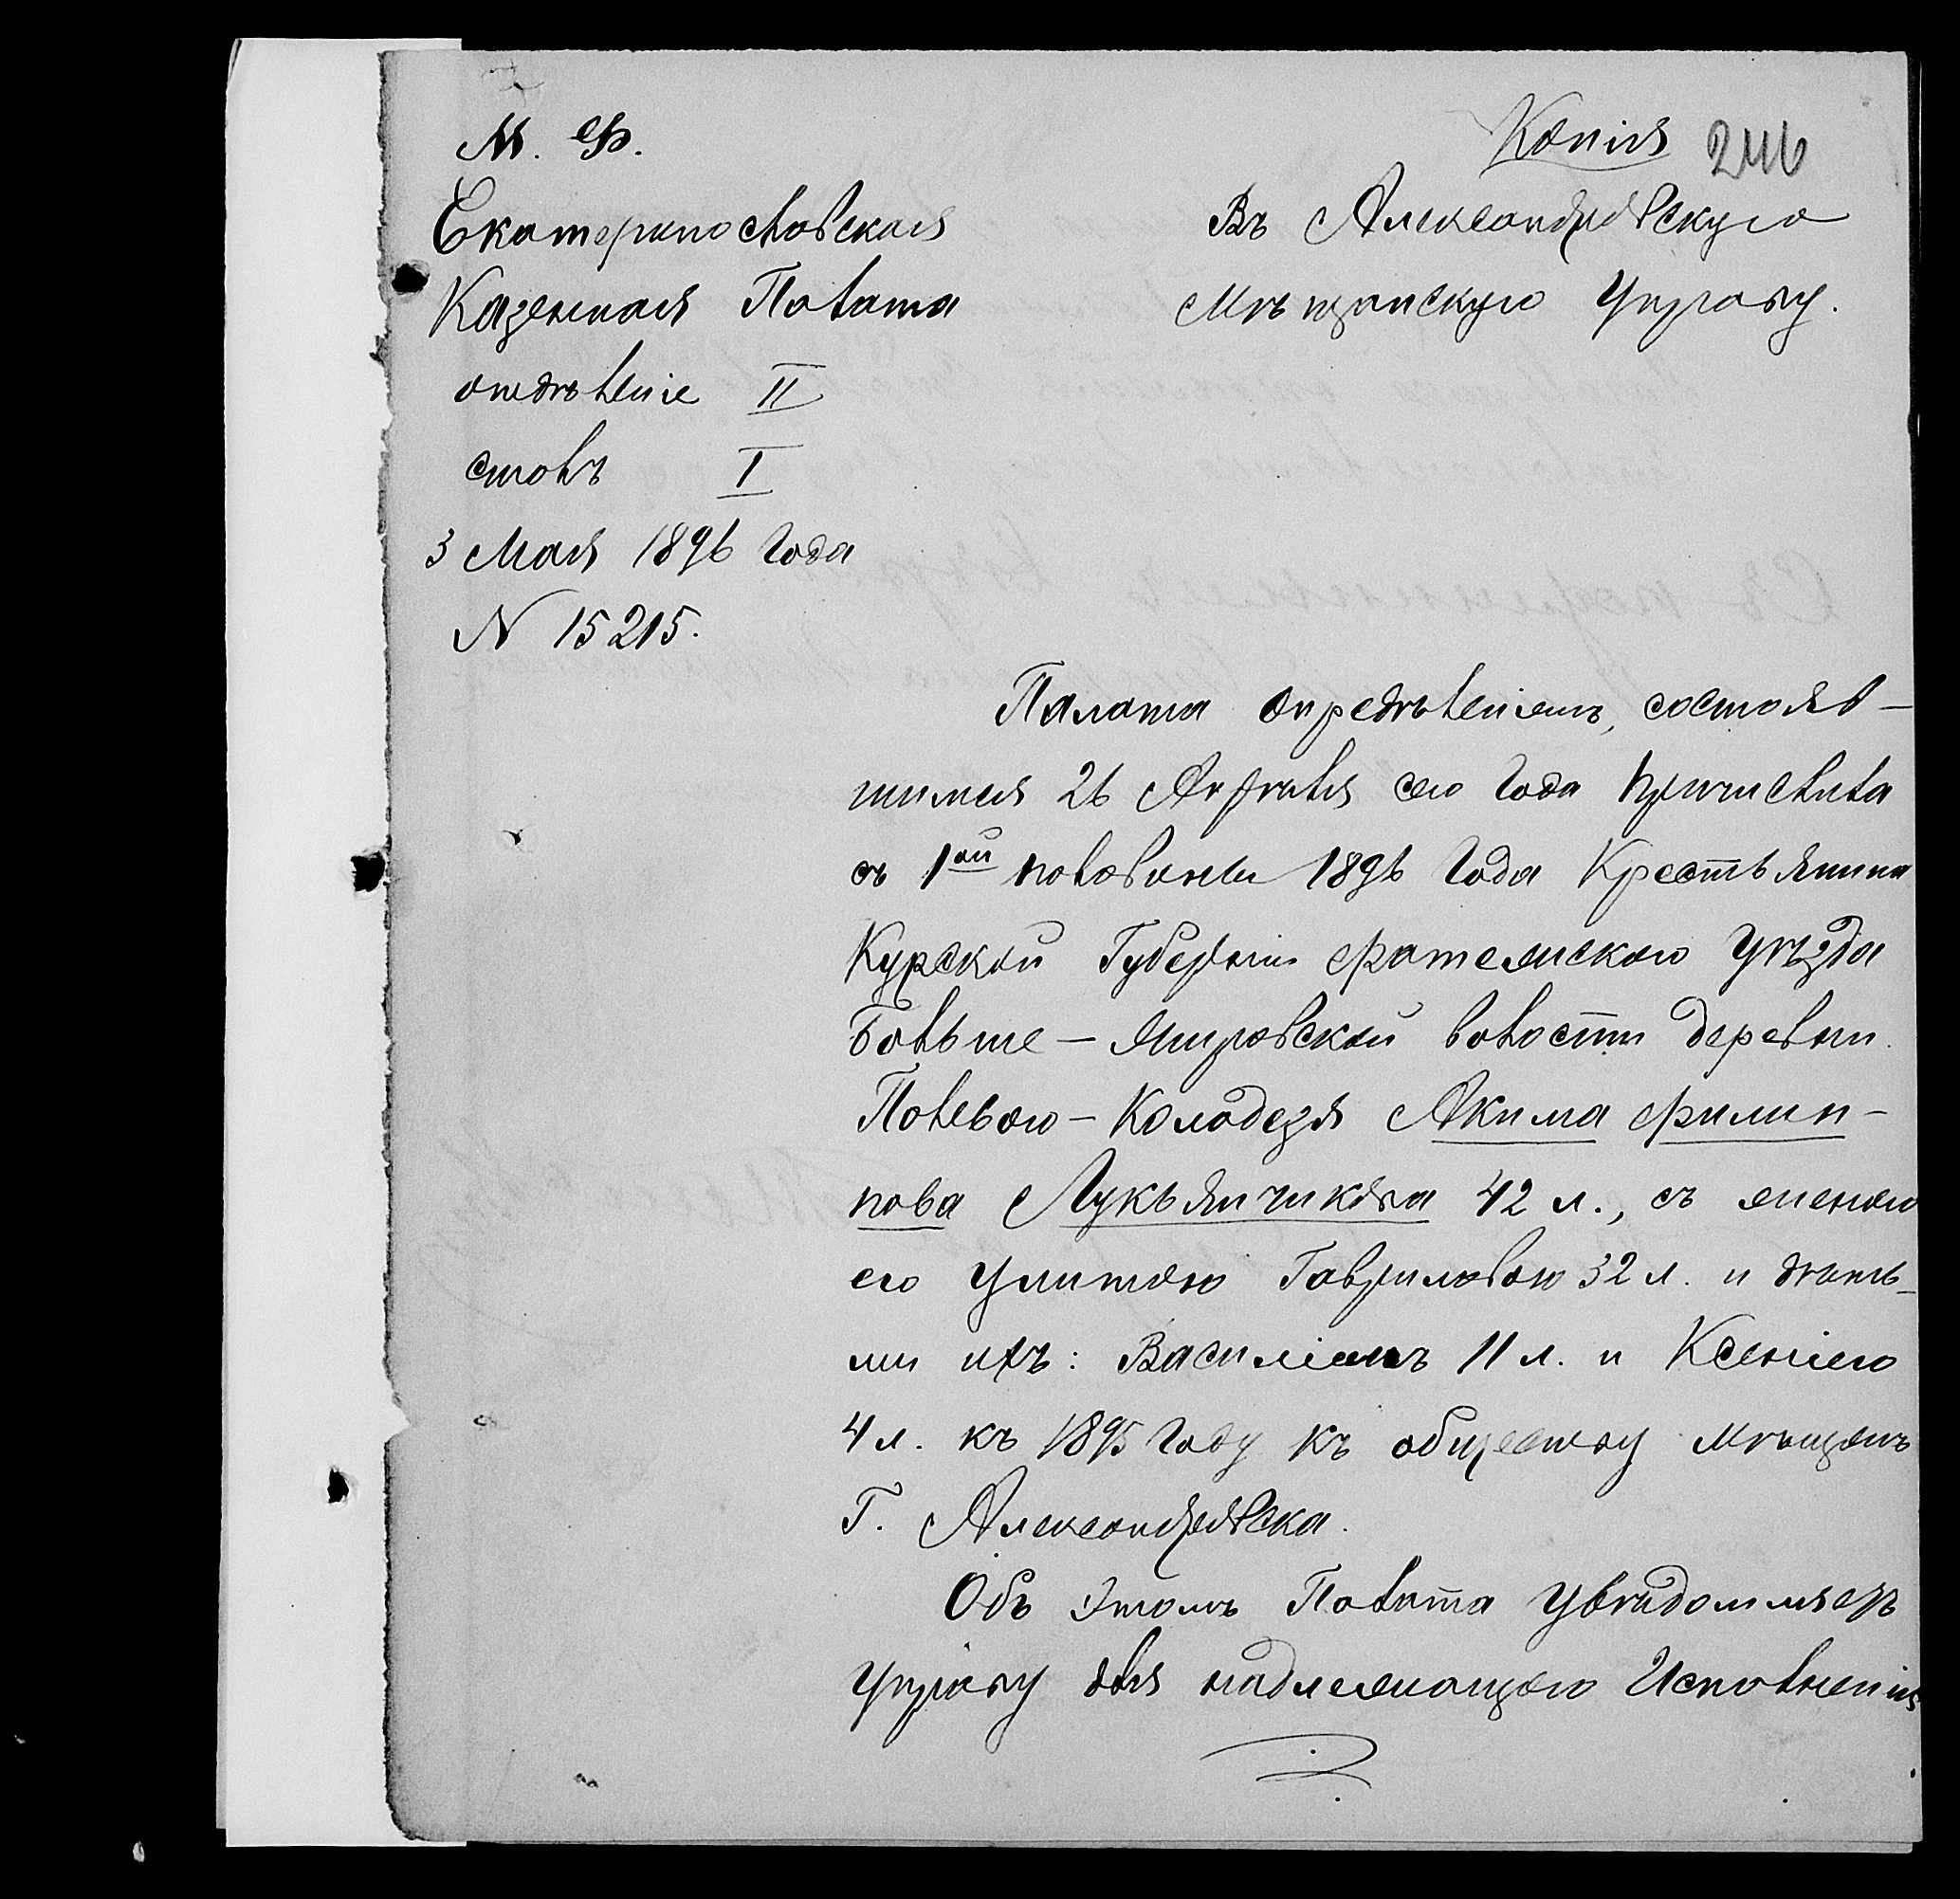 М. Ф.
Копія 246
Екатеринославская
Казенная Палата
отдѣленіе II
столъ I
3 Мая 1896 года
N 15215.
Въ Александровскую
Мѣщанскую Управу.
Палата опредѣленіемъ, состояв-
шимся 26 Апрѣля сего года причислила
съ 1ой половины 1896 года Крестьянина
Курской Губерніи Фатежскаго Уѣзда
Больше-Жировской волости деревни
Полевого-Колодезя Акима Филип-
пова Лукьянчикова 42 л., съ женою
его Улитою Гавриловою 32 л. и дѣть-
ми ихъ: Василіемъ 11 л. и Ксеніею
4 л. къ 1895 году къ обществу мѣщанъ
Г. Александровска.
Объ этомъ Палата увѣдомляетъ
Управу для надлежащаго исполненія